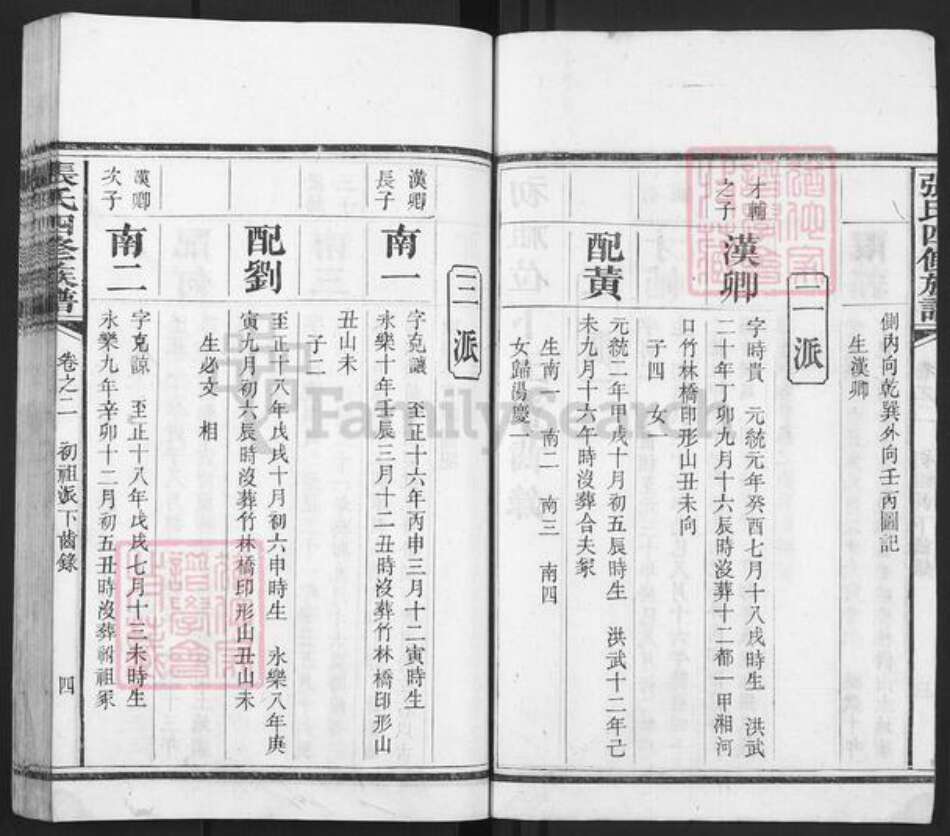 張氏四修族譜
側丙向乾巽外向壬丙圖記
生漢卿
二派
才輔
之子
漢卿
字時貴 元統元年癸酉七月十八戌時生 洪武
二十年丁卯九月十六辰時沒葬十二都一甲湘河
口竹林橋印形山丑未向
子四 女一
配黃
元統二年甲戌十月初五辰時生 洪武十二年己
未九月十六午時沒葬合夫冢
生南一 南二 南三 南四
女歸湯慶一
三派
漢卿
長子
南一
字克讓 至正十六年丙申三月十二寅時生
永樂十年壬辰三月十二丑時沒葬竹林橋印形山
丑山未
子二
配劉
至正十八年戊戌十月初六申時生 永樂八年庚
寅九月初六辰時沒葬竹林橋印形山丑山未
生必文 相
漢卿
次子
南二
字克諒 至正十八年戊戌七月十三未時生
永樂九年辛卯十二月初五丑時沒葬祔祖冢
張氏四修族譜
卷之二 初祖派下齒錄
四
FamilySearch